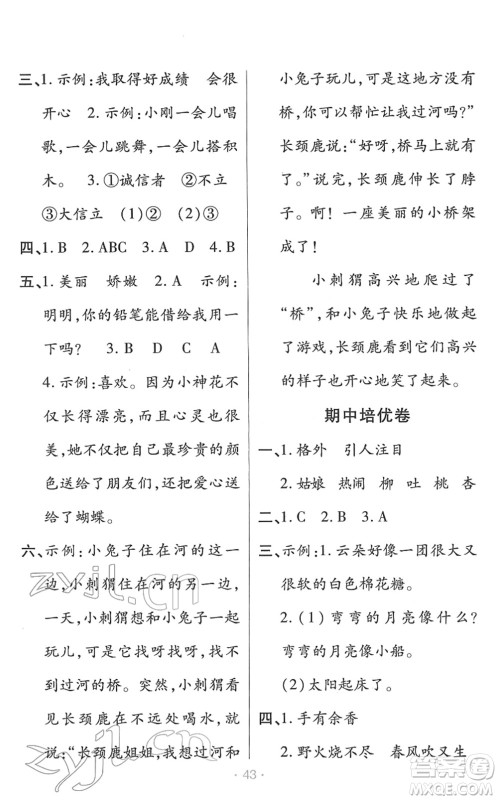 三、1. 示例:我取得好成绩　会很
开心　2. 示例:小刚一会儿唱
歌，一会儿跳舞，一会儿搭积
木。　3. ①诚信者　②不立
③大信立　(1)②　(2)③
四、1. B　2. ABC　3. A　4. B
五、1. 美丽　娇嫩　2. A　示例:
明明,你的铅笔能借给我用一
下吗?　3. B　D　C　A
4. 示例:喜欢。因为小神花不
仅长得漂亮，而且心灵也很
美，它把自己最珍贵的颜
色送给了蝴蝶。
六、示例:小兔子住在河的这一
边,小刺猬住在河的另一边,
一天,小刺猬想和小兔子一起
玩儿,可是它找呀找呀,找不
到过河的桥。突然,小刺猬看
见长颈鹿在那边喝水,就大声
说:“长颈鹿姐姐,我想过河和
小兔子玩儿,可是这地方没有
桥,你可以帮忙让我过河吗?”
长颈鹿说:“好呀,桥马上就有
了。”说完,长颈鹿伸长了脖
子。啊!一座美丽的小桥架
成了!
小刺猬高兴地爬过了
“桥”,和小兔子快乐地做起
了游戏,长颈鹿看到它们高兴
的样子也开心地笑了起来。
期中培优卷
一、1. 格外　引人注目
2. 姑娘　热闹　柳　吐　桃　杏
二、1. C　2. B　3. A
三、示例:1. 云朵好像一个很大又
很软的白色棉花糖。
2. (1) 弯弯的月亮像什么?
弯弯的月亮像小船。
(2) 太阳起床了。
四、1. 手有余香
2. 野火烧不尽　春风吹又生
· 43 ·
zyjl.cn
答案圈
MXQE.COM